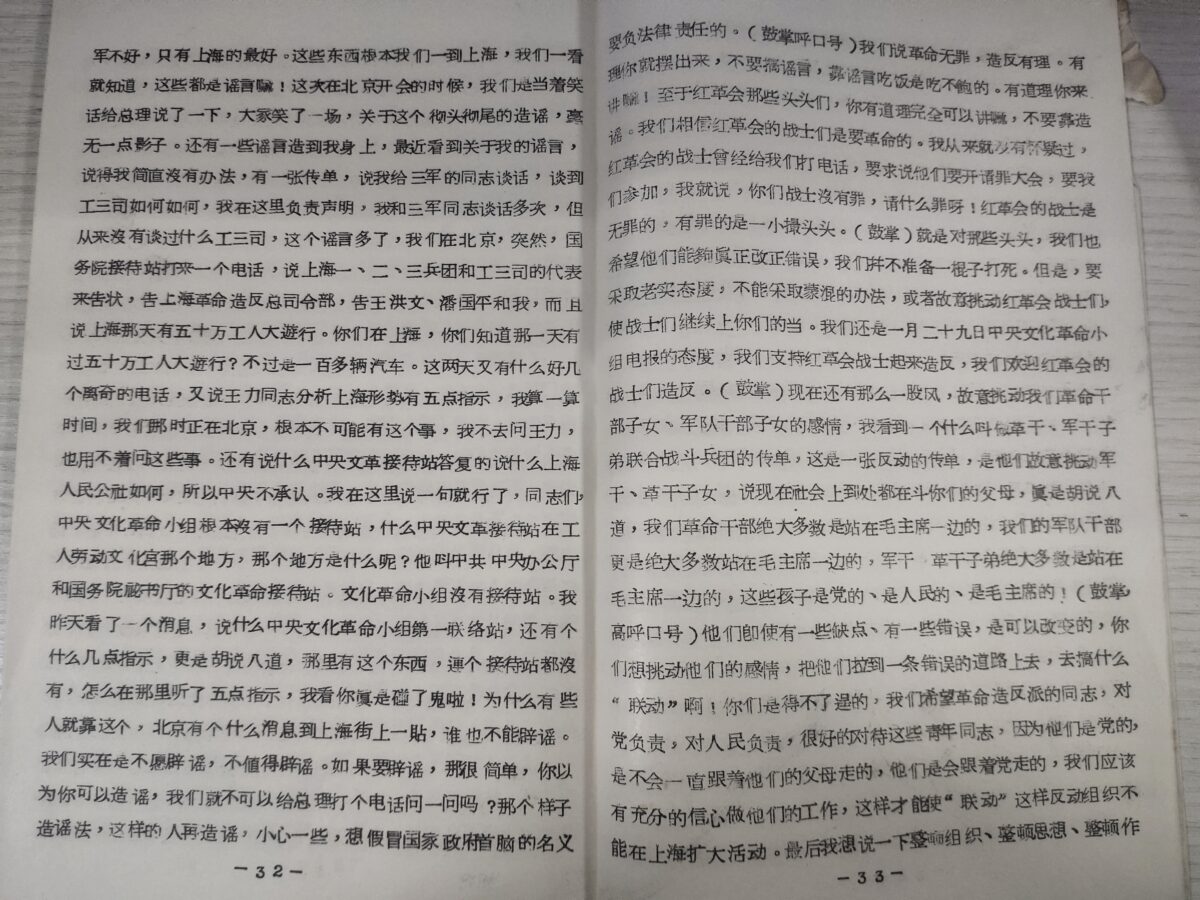 军不好，只有上海的最好。这些东西根本我们一到上海，我们一看
就知道，这些都是谣言嘛！这次在北京开会的时候，我们是当着笑
话给总理说了一下，大家笑了一场，关于这个彻头彻尾的造谣，毫
无一点影子。还有一些谣言造到我身上，最近看到关于我的谣言，
说得我简直没有办法，有一张传单，说我给三军的同志谈话，谈到
工三司如何如何，我在这里负责声明，我和三军同志谈话多次，但
从来没有谈过什么工三司，这个谣言多了，我们在北京，突然，国
务院接待站打来一个电话，说上海一、二、三兵团和工三司的代表
来告状，告上海革命造反总司令部，告王洪文、潘国平和我，而且
说上海那天有五十万工人大遊行。你们在上海，你们知道那一天有
过五十万工人大遊行？不过是一百多辆汽车。这两天又有什么好几
个离奇的电话，又说王力同志分析上海形势有五点指示，我算一算
时间，我们那时正在北京，根本不可能有这个事，我不去问王力，
也用不着问这些事。还有说什么中央文革接待站答复的说什么上海
人民公社如何，所以中央不承认。我在这里说一句就行了，同志们，
中央文化革命小组根本没有一个接待站，什么中央文革接待站在工
人劳动文化宫那个地方，那个地方是什么呢？他叫中共中央办公厅
和国务院秘书厅的文化革命接待站。文化革命小组没有接待站。我
昨天看了一个消息，说什么中央文化革命小组第一联络站，还有个
什么几点指示，更是胡说八道，那里有这个东西，连个接待站都没
有，怎么在那里听了五点指示，我看你真是碰了鬼啦！为什么有些
人就靠这个，北京有个什么消息到上海街上一贴，谁也不能辟谣。
我们实在是不愿辟谣，不值得辟谣。如果要辟谣，那很简单，你以
为你可以造谣，我们就不可以给总理打个电话问一问吗？那个样子
造谣法，这样的人再造谣，小心一些，想假冒国家政府首脑的名义
－32－
要负法律责任的。（鼓掌呼口号）我们说革命无罪，造反有理。有
理你就摆出来，不要搞谣言，靠谣言吃饭是吃不饱的。有道理你来
讲嘛！至于红革会那些头头们，你有道理完全可以讲嘛，不要靠造
谣。我们相信红革会的战士们是要革命的。我从来就没有怀疑过，
红革会的战士曾经给我们打电话，要求说他们要开请罪大会，要我
们参加，我就说，你们战士没有罪，请什么罪呀！红革会的战士是
无罪的，有罪的是一小撮头头。（鼓掌）就是对那些头头，我们也
希望他们能够真正改正错误，我们并不准备一棍子打死。但是，要
采取老实态度，不能采取蒙混的办法，或者故意挑动红革会战士们，
使战士们继续上你们的当。我们还是一月二十九日中央文化革命小
组电报的态度，我们支持红革会战士起来造反，我们欢迎红革会的
战士们造反。（鼓掌）现在还有那么一股风，故意挑动我们革命干
部子女、军队干部子女的感情，我看到一个什么叫做革干、军干子
弟联合战斗兵团的传单，这是一张反动的传单，是他们故意挑动军
干、革干子女，说现在社会上到处都在斗你们的父母，真是胡说八
道，我们革命干部绝大多数是站在毛主席一边的，我们的军队干部
更是绝大多数站在毛主席一边的，军干　革干子弟绝大多数是站在
毛主席一边的，这些孩子是党的、是人民的、是毛主席的！（鼓掌，
高呼口号）他们即使有一些缺点、有一些错误，是可以改变的，你
们想挑动他们的感情，把他们拉到一条错误的道路上去，去搞什么
“联动”啊！你们是得不了逞的，我们希望革命造反派的同志，对
党负责，对人民负责，很好的对待这些青年同志，因为他们是党的，
是不会一直跟着他们的父母走的，他们是会跟着党走的，我们应该
有充分的信心做他们的工作，这样才能使“联动”这样反动组织不
能在上海扩大活动。最后我想说一下整顿组织、整顿思想、整顿作
－33－